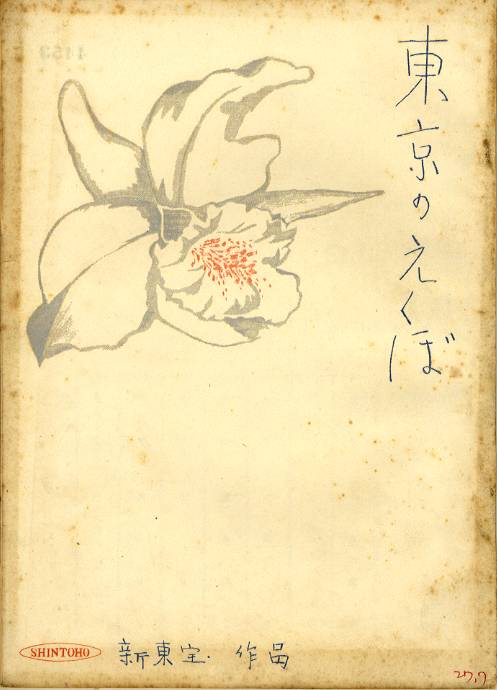 東京のえくぼ
SHINTOHO 新東宝. 作品
27.7